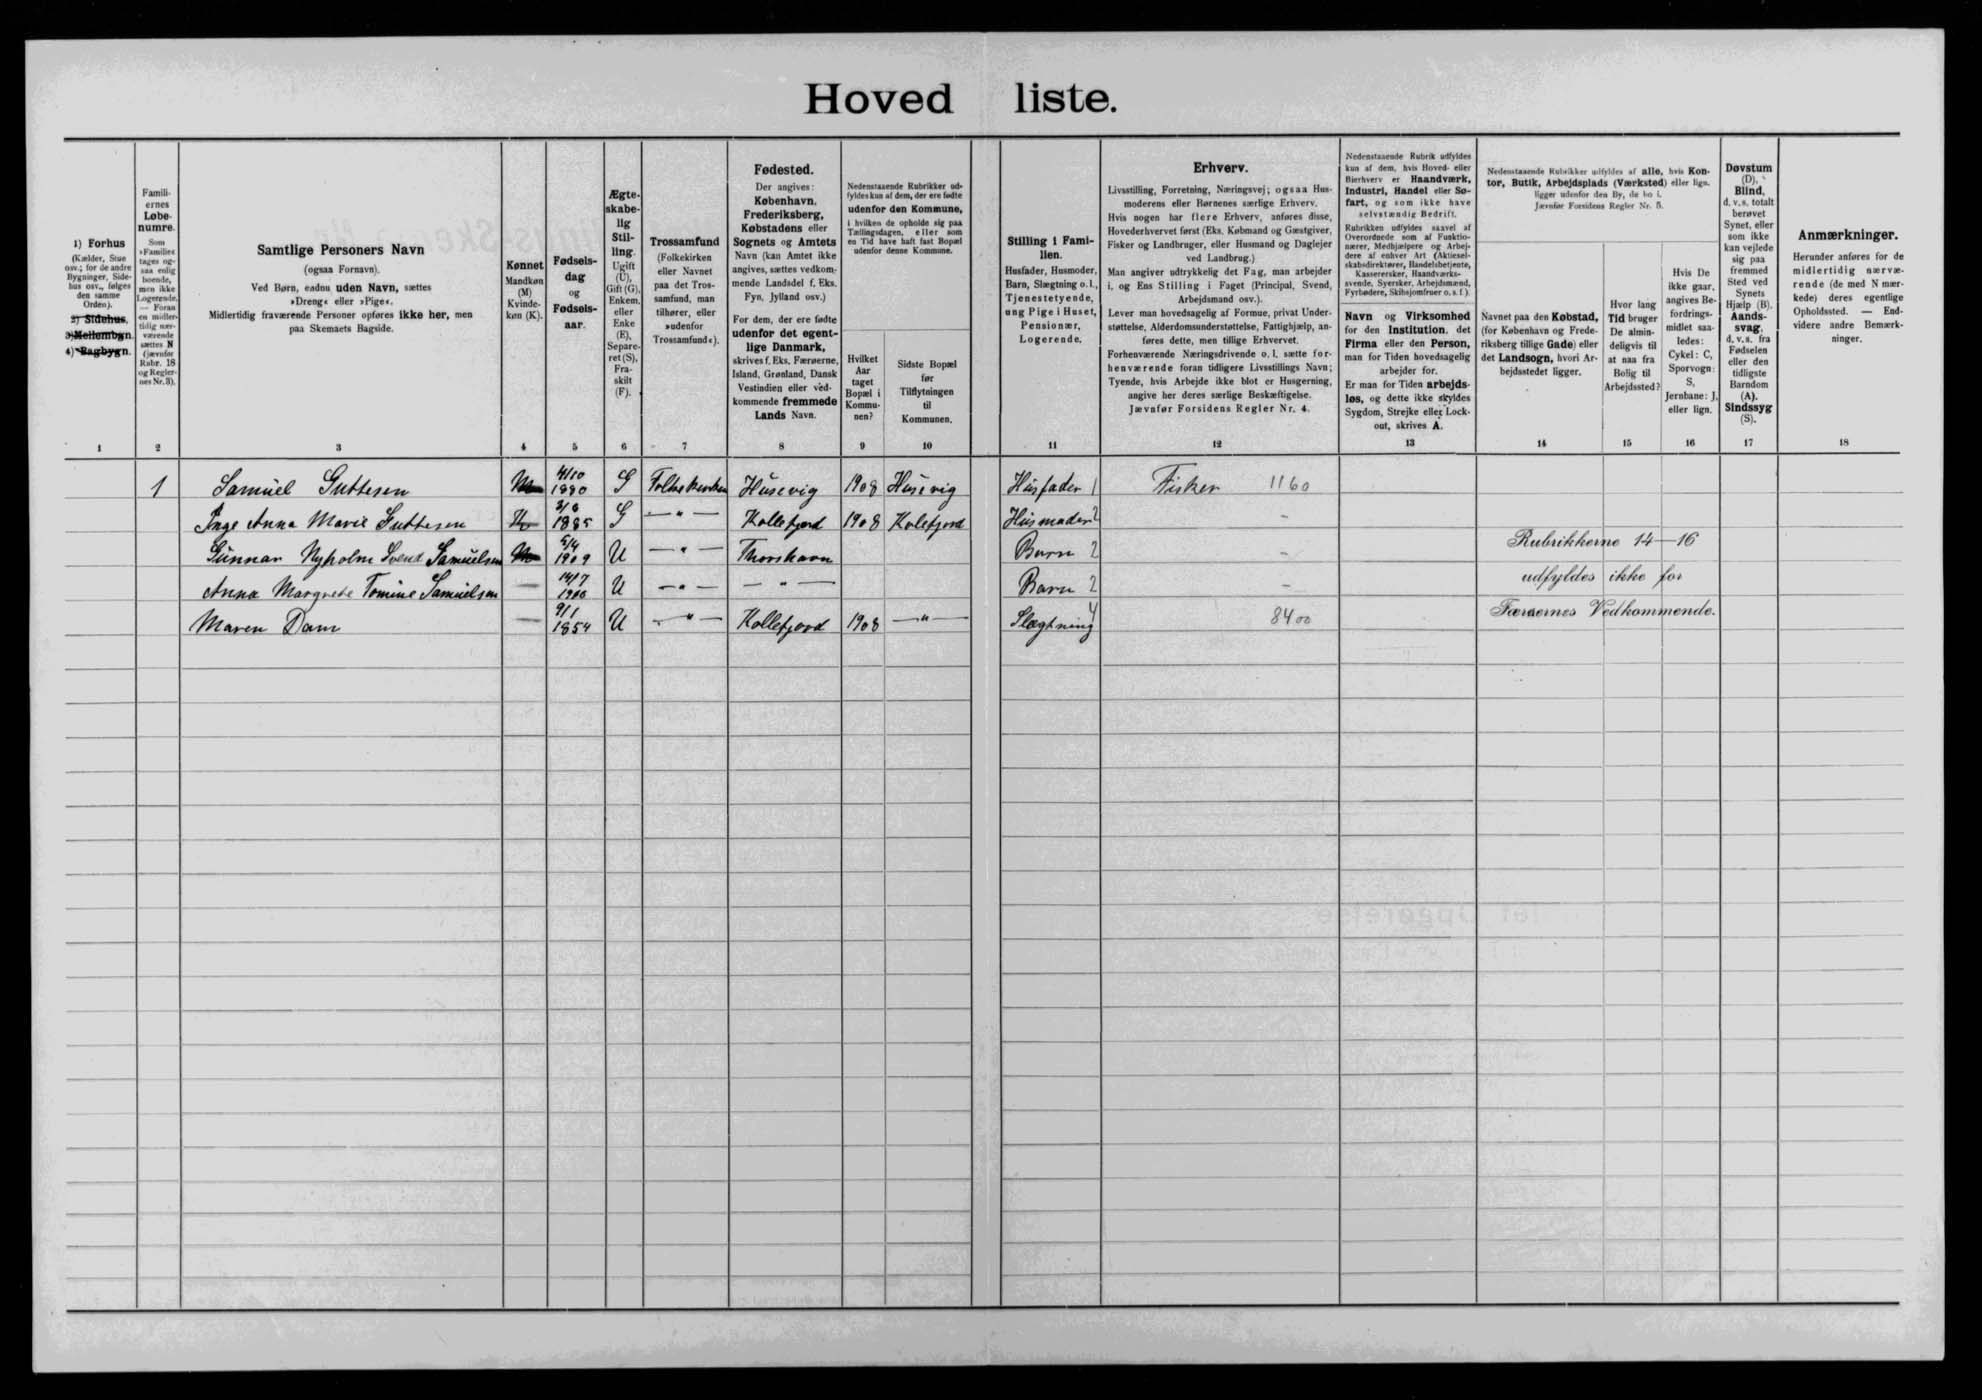 Hoved liste.
1) Forhus
(Kælder, Stue
osv.; for de andre
Bygninger, Side-
hus osv., følges
den samme
Orden).
2) Sidehus.
3) Mellembgn.
4) Bagbygn.
1
Famili-
ernes
Løbe-
numre.
Som
»Familie«
tages og-
saa enlig
boende,
men ikke
Logerende.
— Foran
en midler-
tidig nær-
værende
sættes N
(jævnfør
Rubr. 18
og Regler-
nes Nr. 3).
2
Samtlige Personers Navn
(ogsaa Fornavn).
Ved Børn, endnu uden Navn, sættes
»Dreng« eller »Pige«.
Midlertidig fraværende Personer opføres ikke her, men
paa Skemaets Bagside.
3
Kønnet
Mandkøn
(M)
Kvinde-
køn (K).
4
Fødsels-
dag
og
Fødsels-
aar.
5
Ægte-
skabe-
lig
Stil-
ling.
Ugift
(U),
Gift (G),
Enkem.
eller
Enke
(E),
Separe-
ret (S),
Fra-
skilt
(F).
6
Trossamfund
(Folkekirken
eller Navnet
paa det Tros-
samfund, man
tilhører, eller
»udenfor
Trossamfund«).
7
Fødested.
Der angives:
København,
Frederiksberg,
Købstadens eller
Sognets og Amtets
Navn (kan Amtet ikke
angives, sættes vedkom-
mende Landsdel f. Eks.
Fyn, Jylland osv.)
For dem, der ere fødte
udenfor det egent-
lige Danmark,
skrives f. Eks. Færøerne,
Island, Grønland, Dansk
Vestindien eller ved-
kommende fremmede
Lands Navn.
8
Nedenstaaende Rubrikker ud-
fyldes kun af dem, der ere fødte
udenfor den Kommune,
i hvilken de opholde sig paa
Tællingsdagen, eller som
en Tid have haft fast Bopæl
udenfor denne Kommune.
Hvilket
Aar
taget
Bopæl i
Kommu-
nen?
9
Sidste Bopæl
før
Tilflytningen
til
Kommunen.
10
Stilling i Fami-
lien.
Husfader, Husmoder,
Barn, Slægtning o. l.,
Tjenestetyende,
ung Pige i Huset,
Pensionær,
Logerende.
11
Erhverv.
Livsstilling, Forretning, Næringsvej; ogsaa Hus-
moderens eller Børnenes særlige Erhverv.
Hvis nogen har flere Erhverv, anføres disse,
Hovederhvervet først (Eks. Købmand og Gæstgiver,
Fisker og Landbruger, eller Husmand og Daglejer
ved Landbrug.)
Man angiver udtrykkelig det Fag, man arbejder
i, og Ens Stilling i Faget (Principal, Svend,
Arbejdsmand osv.).
Lever man hovedsagelig af Formue, privat Under-
støttelse, Alderdomsunderstøttelse, Fattighjælp, an-
føres dette, men tillige Erhvervet.
Forhenværende Næringsdrivende o. l. sætte for-
henværende foran tidligere Livsstillings Navn;
Tyende, hvis Arbejde ikke blot er Husgerning,
angive her deres særlige Beskæftigelse.
Jævnfør Forsidens Regler Nr. 4.
12
Nedenstaaende Rubrik udfyldes
kun af dem, hvis Hoved- eller
Bierhverv er Haandværk,
Industri, Handel eller Sø-
fart, og som ikke have
selvstændig Bedrift.
Rubrikken udfyldes saavel af
Overordnede som af Funktio-
nærer, Medhjælpere og Arbej-
dere af enhver Art (Aktiesel-
skabsdirektører, Handelsbetjente,
Kasserersker, Haandværks-
svende, Syersker, Arbejdsmænd,
Fyrbødere, Skibsjomfruer o. s. f.).
Navn og Virksomhed
for den Institution, det
Firma eller den Person,
man for Tiden hovedsagelig
arbejder for.
Er man for Tiden arbejds-
løs, og dette ikke skyldes
Sygdom, Strejke eller Lock-
out, skrives A.
13
Nedenstaaende Rubrikker udfyldes af alle, hvis Kon-
tor, Butik, Arbejdsplads (Værksted) eller lign.
ligger udenfor den By, de bo i.
Jævnfør Forsidens Regler Nr. 5.
Navnet paa den Købstad,
(for København og Frede-
riksberg tillige Gade) eller
det Landsogn, hvori Ar-
bejdsstedet ligger.
14
Hvor lang
Tid bruger
De almin-
deligvis til
at naa fra
Bolig til
Arbejdssted?
15
Hvis De
ikke gaar,
angives Be-
fordrings-
midlet saa-
ledes:
Cykel: C,
Sporvogn:
S,
Jernbane: J,
eller lign.
16
Døvstum
(D),
Blind,
d. v. s. totalt
berøvet
Synet, eller
som ikke
kan vejlede
sig paa
fremmed
Sted ved
Synets
Hjælp (B).
Aands-
svag,
d. v. s. fra
Fødselen
eller den
tidligste
Barndom
(A).
Sindssyg
(S).
17
Anmærkninger.
Herunder anføres for de
midlertidig nærvæ-
rende (de med N mær-
kede) deres egentlige
Opholdssted. — End-
videre andre Bemærk-
ninger.
18
1 Samuel Guttesen M 4/10 1880 G Folkekirken Húsevig 1908 Húsevig Húsfader 1 Fisker 1160
Inge Anna Marie Guttesen K 2/6 1885 G —"— Kollefjord 1908 Kolefjord Húsmoder 2 -
Gúnnar Nyholm Svend Samúelsen M 5/4 1909 U —"— Thorshavn Barn 2 - Rubrikkerne 14—16
Anna Margrete Tomine Samúelsen — 14/7 1910 U —"— —"— Barn 2 - udfyldes ikke for
Maren Dam — 9/1 1854 U —"— Kollefjord 1908 —"— Slægtning 4 8400 Færøernes Vedkommende.